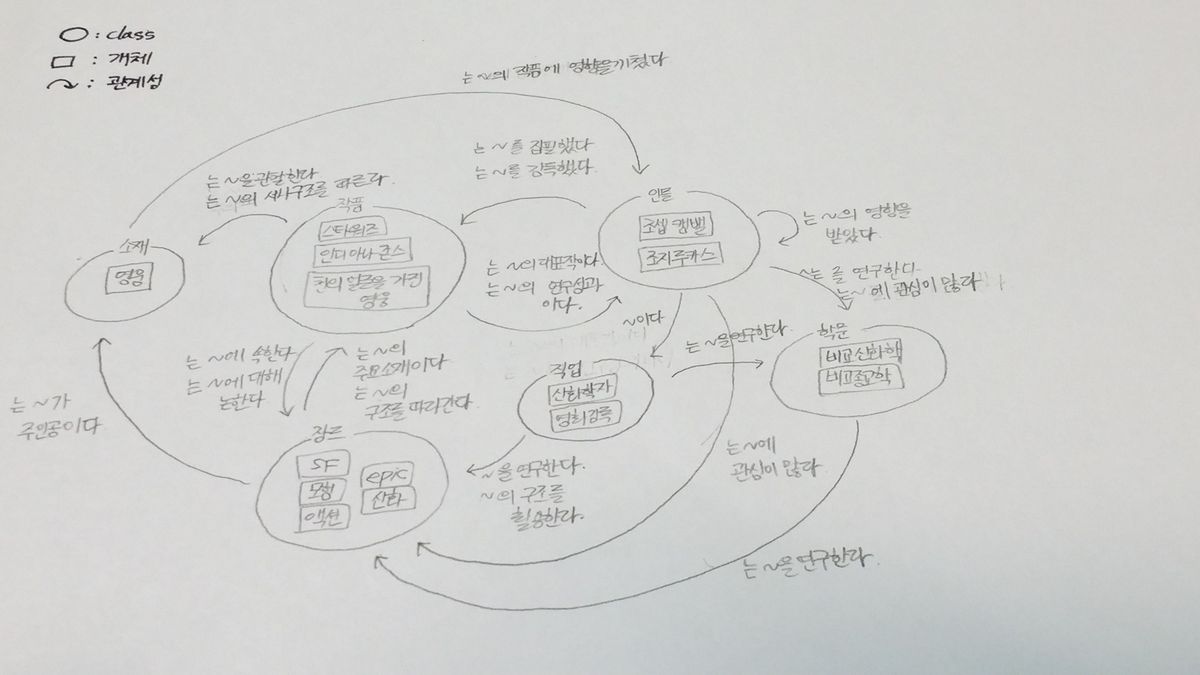 ○ : class
□ : 개체
↷ : 관계성
는 ~의 작품에 영향을 끼쳤다
는 ~를 집필했다
는 ~를 감독했다.
는 ~을 관찰한다
는 ~의 서사구조를 따른다.
작품
스타워즈
인디아나 존스
천의 얼굴을 가진
영웅
소재
영웅
인물
조셉 캠벨
조지루카스
는 ~의 영향을
받았다.
는 ~의 대표작이다
는 ~의 연구성과
이다.
~는 를 연구한다.
는 ~에 관심이 많다
~이다
는 ~을 연구한다.
학문
비교신화학
비교종교학
직업
신화학자
영화감독
는 ~에 속한다
는 ~에 대해
논한다
는 ~의
주요소재이다
는 ~의
구조를 따라간다.
는 ~가
주인공이다
장르
SF
모험
액션
epic
신화
~을 연구한다.
~의 구조를
활용한다.
는 ~에
관심이 많다
는 ~을 연구한다.